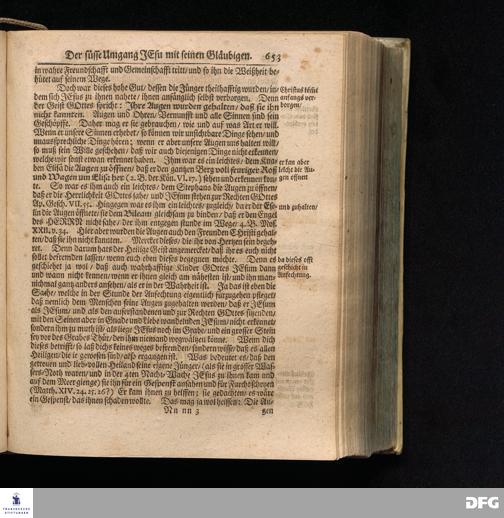 Der süsse Umgang JEsu mit seinen Gläubigen. 653
in wahre Freundschafft und Gemeinschafft tritt/ und so ihn die Weißheit be-
hütet auf seinem Wege.
Doch war dieses hohe Gut/ dessen die Jünger theilhafftig wurden/ in-
dem sich JEsus zu ihnen nahete/ ihnen anfänglich selbst verborgen. Denn
der Geist GOttes spricht: Ihre Augen wurden gehalten/ daß sie ihn
nicht kannten. Augen und Ohren/ Vernunfft und alle Sinnen sind sein
Geschöpffe. Daher mag er sie gebrauchen/ wie und auf was Art er will.
Wenn er unsere Sinnen erhebet/ so können wir unsichtbare Dinge sehen/ und
unaussprechliche Dinge hören; wenn er aber unsere Augen uns halten will/
so muß sein Wille geschehen/ daß wir auch diejenigen Dinge nicht erkennen/
welche wir sonst etwan erkennet haben. Ihm war es ein leichtes/ dem Kna-
ben Elisä die Augen zu öffnen/ daß er den gantzen Berg voll feuriger Roß
und Wagen um Elisa her (2. B. der Kön. VI. 17.) sehen und erkennen kon-
te. So war es ihm auch ein leichtes/ dem Stephano die Augen zu öffnen/
daß er die Herrlichkeit GOttes sahe/ und JEsum stehen zur Rechten GOttes
Ap. Gesch. VII. 55. Hingegen war es ihm ein leichtes/ zugleich/ da er der Ese-
lin die Augen öffnete/ sie dem Bileam gleichsam zu binden/ daß er den Engel
des HERRN nicht sahe/ der ihm entgegen stund im Wege/ 4. B. Mos.
XXII. v. 34. Hier aber wurden die Augen auch den Freunden Christi gehal-
ten/ daß sie ihn nicht kannten. Mercket dieses/ die ihr von Hertzen sein begeh-
ret. Denn darum hats der Heilige Geist angemercket/ daß ihr es euch nicht
sollet befremden lassen/ wenn euch eben dieses begegnen möchte. Denn es
geschiehet ja wol/ daß auch wahrhafftige Kinder GOttes JEsum dann
und wann nicht kennen/ wenn er ihnen gleich am nähesten ist/ und ihn man-
nichmal gantz anders ansehen/ als er in der Wahrheit ist. Ja das ist eben die
Sache/ welche in der Stunde der Anfechtung eigentlich fürzugehen pfleget/
daß nemlich dem Menschen seine Augen zugehalten werden/ daß er JEsum
als JEsum/ und als den auferstandenen und zur Rechten GOttes sitzenden/
mit den Seinen aber in Gnade und Liebe wandelnden JEsum/ nicht erkennet/
sondern ihm zu muth ist/ als liege JEsus noch im Grabe/ und ein grosser Stein
sey vor des Grabes Thür/ den ihm niemand wegwältzen könne. Wem dich
dieses betrifft/ so laß dichs keines weges befremden/ sondern wisse/ daß es allen
Heiligen/ die je gewesen sind/ also ergangen ist. Was bedeutet es/ daß den
getreuen und lieb-vollen Heiland seine eigene Jünger/ (als sie in grosser Was-
sers-Noth waren/ und in der 4ten Nacht-Wache JEsus zu ihnen kam und
auf dem Meer gienge) sie ihn für ein Gespenst ansahen und für Furcht schryen
(Matth. XIV. 24. 25. 26?) Er kam ihnen zu helffen; sie gedachten/ es wäre
ein Gespenst/ das ihnen schaden wollte. Das mag ja wol heissen: Die Au-
Nn nn 3 gen
Christus bliebe
anfangs ver-
borgen/
er kan aber
leicht die Au-
gen öffnen
und zuhalten/
da dieses offt
geschicht in
Anfechtung.
FRANCKESCHE
STIFTUNGEN
DFG